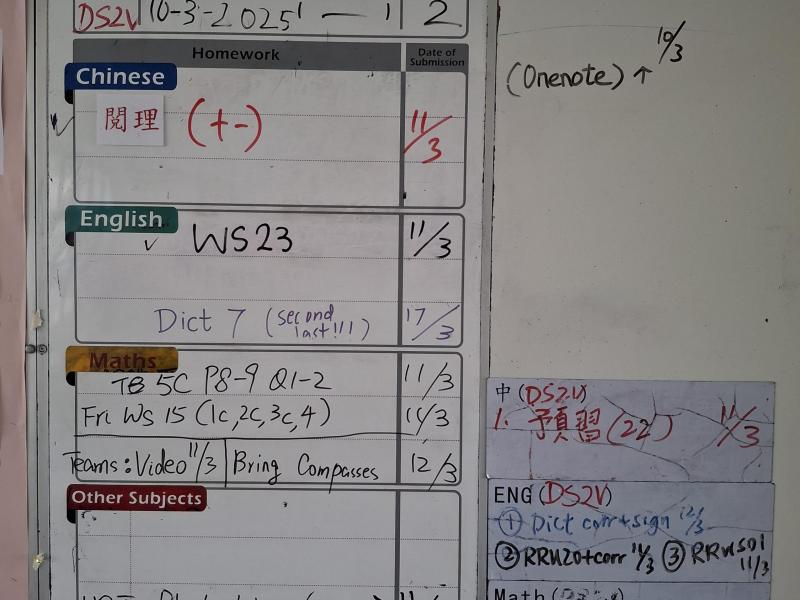 DS2V 10-3-2025 一 1 2
Homework Date of Submission
Chinese
閱理 (十一) 11/3
English
✓ WS23 11/3
Dict 7 (second last!!!) 17/3
Maths
TB 5C P8-9 Q1-2 11/3
Fri WS 15 (1c,2c,3c,4) 11/3
Teams: Video 11/3 Bring Compasses 12/3
Other Subjects
10/3
(Onenote) ↑
中 (DS2V)
1. 預習(22) 11/3
ENG (DS2V)
① Dict corr+sign 12/3
② RRU20+corr 11/3 ③ 11/3
Math